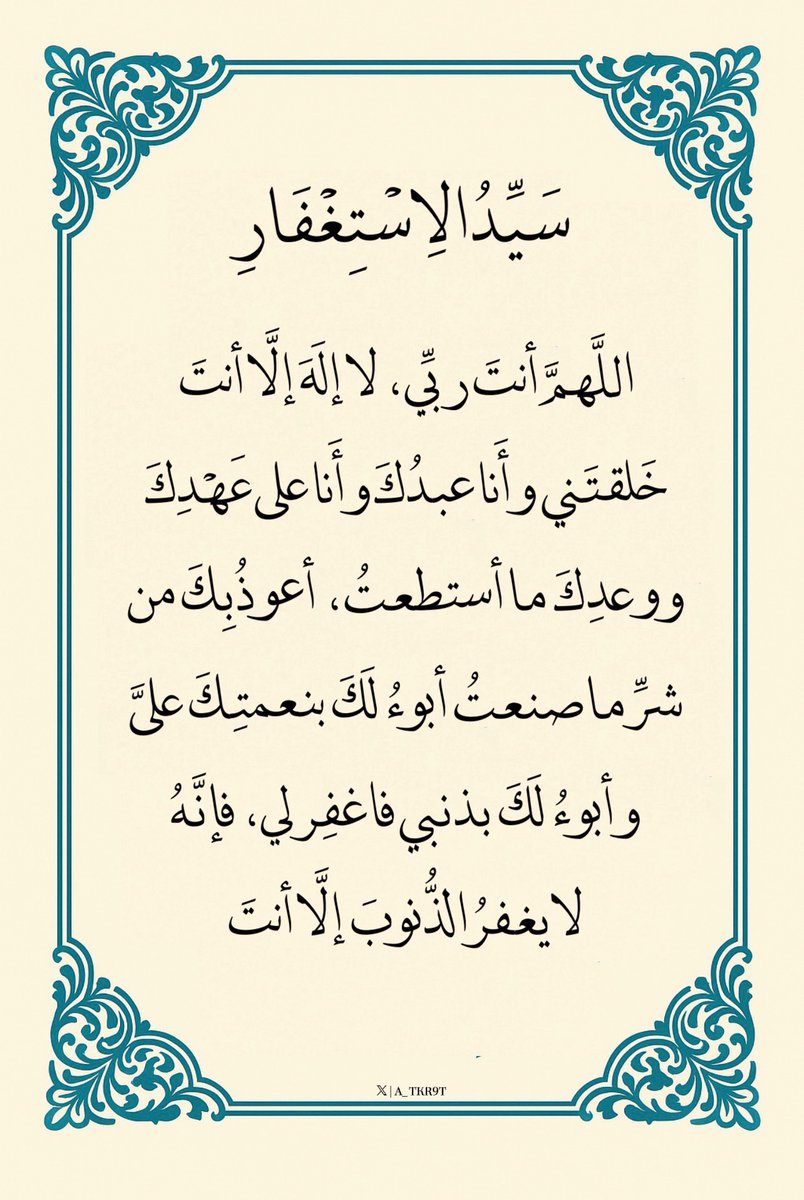 سَيِّدُ الِاسْتِغْفَارِ
اللَّهمَّ أنتَ ربِّي، لا إلَهَ إلَّا أنتَ
خَلقتَني وأَنا عبدُكَ وأَنا على عَهْدِكَ
ووعدِكَ ما أستطعتُ، أعوذُ بِكَ من
شرِّ ما صنعتُ أبوءُ لَكَ بنعمتِكَ عليَّ
وأبوءُ لَكَ بذنبي فاغفِر لي، فإنَّهُ
لا يغفرُ الذُّنوبَ إلَّا أنتَ
𝕏 | A_TKR9T